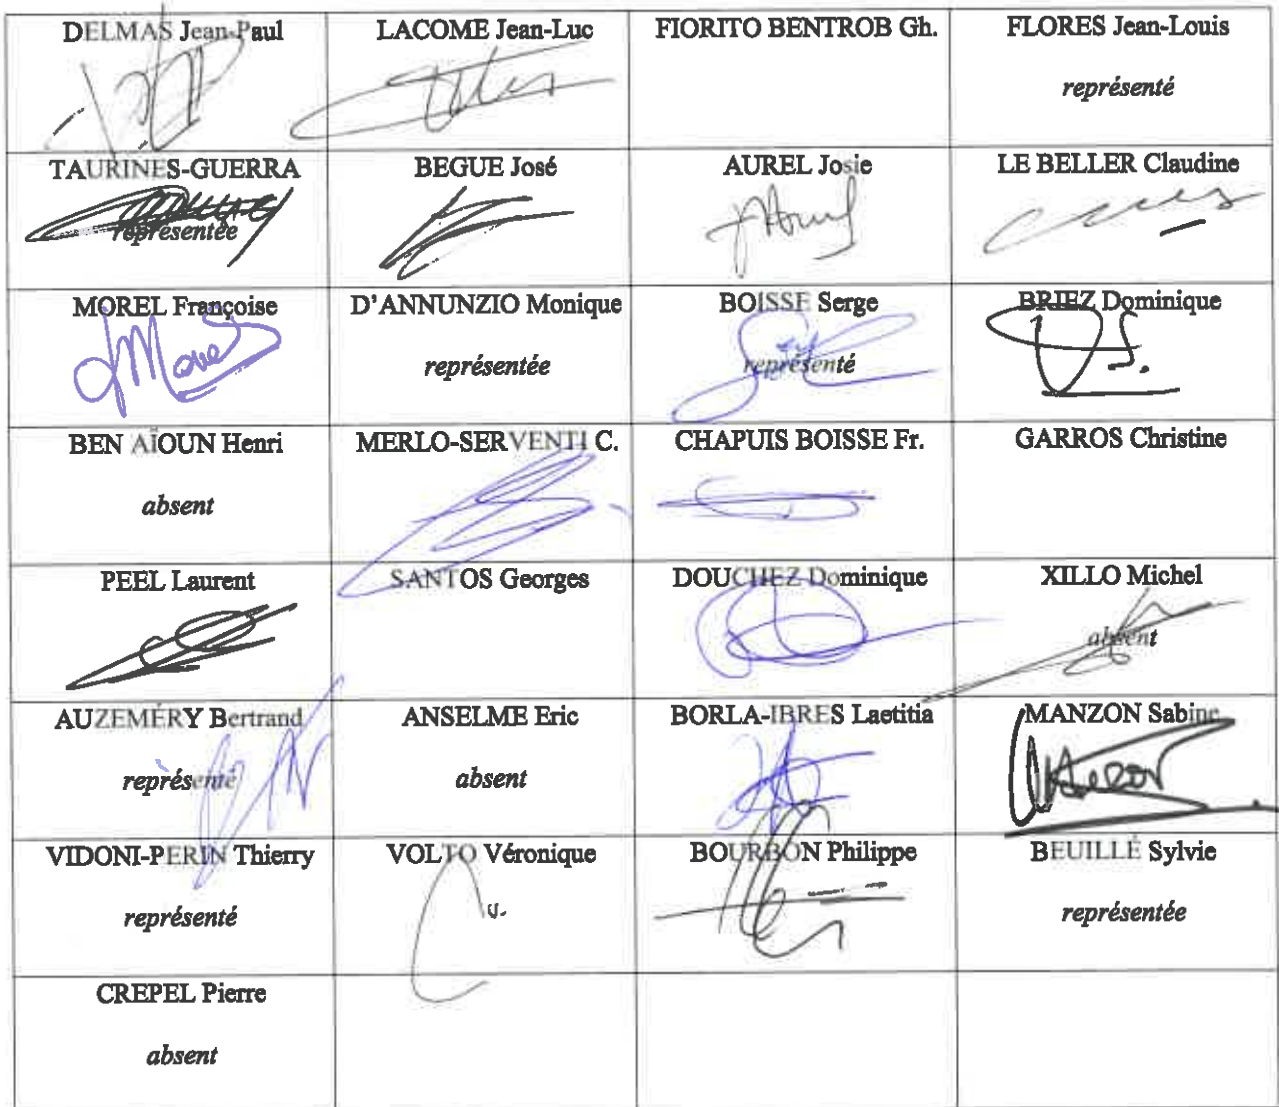 DELMAS Jean-Paul
LACOME Jean-Luc
FIORITO BENTROB Gh.
FLORES Jean-Louis
représenté
TAURINES-GUERRA
représentée
BEGUE José
AUREL Josie
LE BELLER Claudine
MOREL Françoise
D'ANNUNZIO Monique
représentée
BOISSE Serge
représenté
BRIEZ Dominique
BEN AÏOUN Henri
absent
MERLO-SERVENTI C.
CHAPUIS BOISSE Fr.
GARROS Christine
PEEL Laurent
SANTOS Georges
DOUCHEZ Dominique
XILLO Michel
absent
AUZEMÉRY Bertrand
représenté
ANSELME Eric
absent
BORLA-IBRES Laetitia
MANZON Sabine
VIDONI-PERIN Thierry
représenté
VOLTO Véronique
BOURBON Philippe
BEUILLÉ Sylvie
représentée
CREPEL Pierre
absent